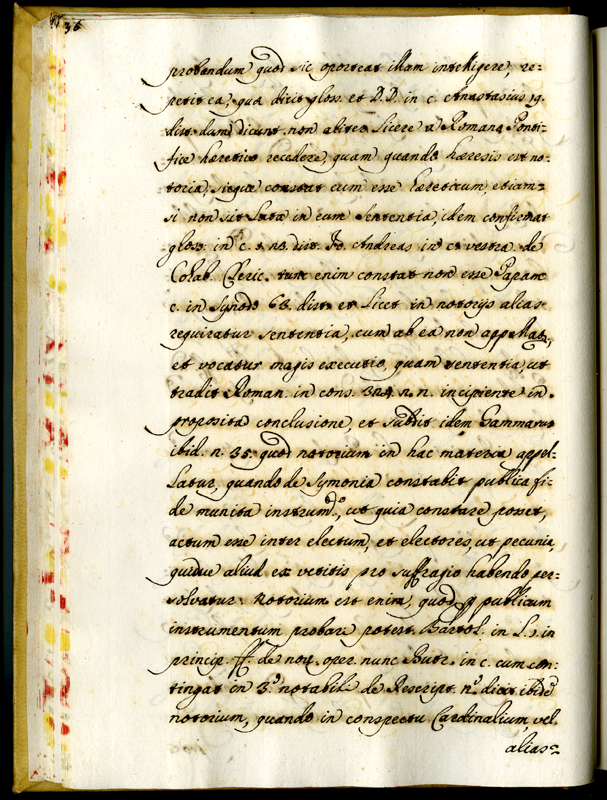 36
probandum quod sic oporteat illam intelligere, re=
petit ea, quæ dicit gloss. et D.D. in c. Anastasius 19.
dist. dum dicunt non aliter licere a Romano Ponti=
fice hæretico recedere, quam quando hæresis est no=
toria, sicque constat eum esse hæreticum, etiam=
si non sit lata in eum sententia, idem confirmat
glos. in c. dist. Jo. Andreas in c. vestra de
Cohab. Cleric. tunc enim constat non esse Papam
c. in Synodo 63. dist. et licet in notorijs alias
requiratur sententia, cum ab ea non appellatr,
et vocatur magis executio, quam sententia, ut
tradit Roman. in cons. 324. n. n. incipiente in
proposita conclusione, et subdit idem Gammarus
ibid. n. 35. quod notorium in hac materia appel=
latur, quando de Symonia constabit publica fi=
de munita instrumto., ut quia constare posset,
actum esse inter electum, et electores, ut pecunia,
quidue aliud ex vetitis pro suffragio habendo per=
solvatur. Notorium est enim, quod p publicum
instrumentum probari potest. Bartol. in L. 1. in
princip. ff. de nou. oper. nunc Butr. in c. cum con=
tingat in 3.o notabili de Rescript. n.o dicit ibidē
notorium, quando in conspectu Cardinalium, vel
alias=